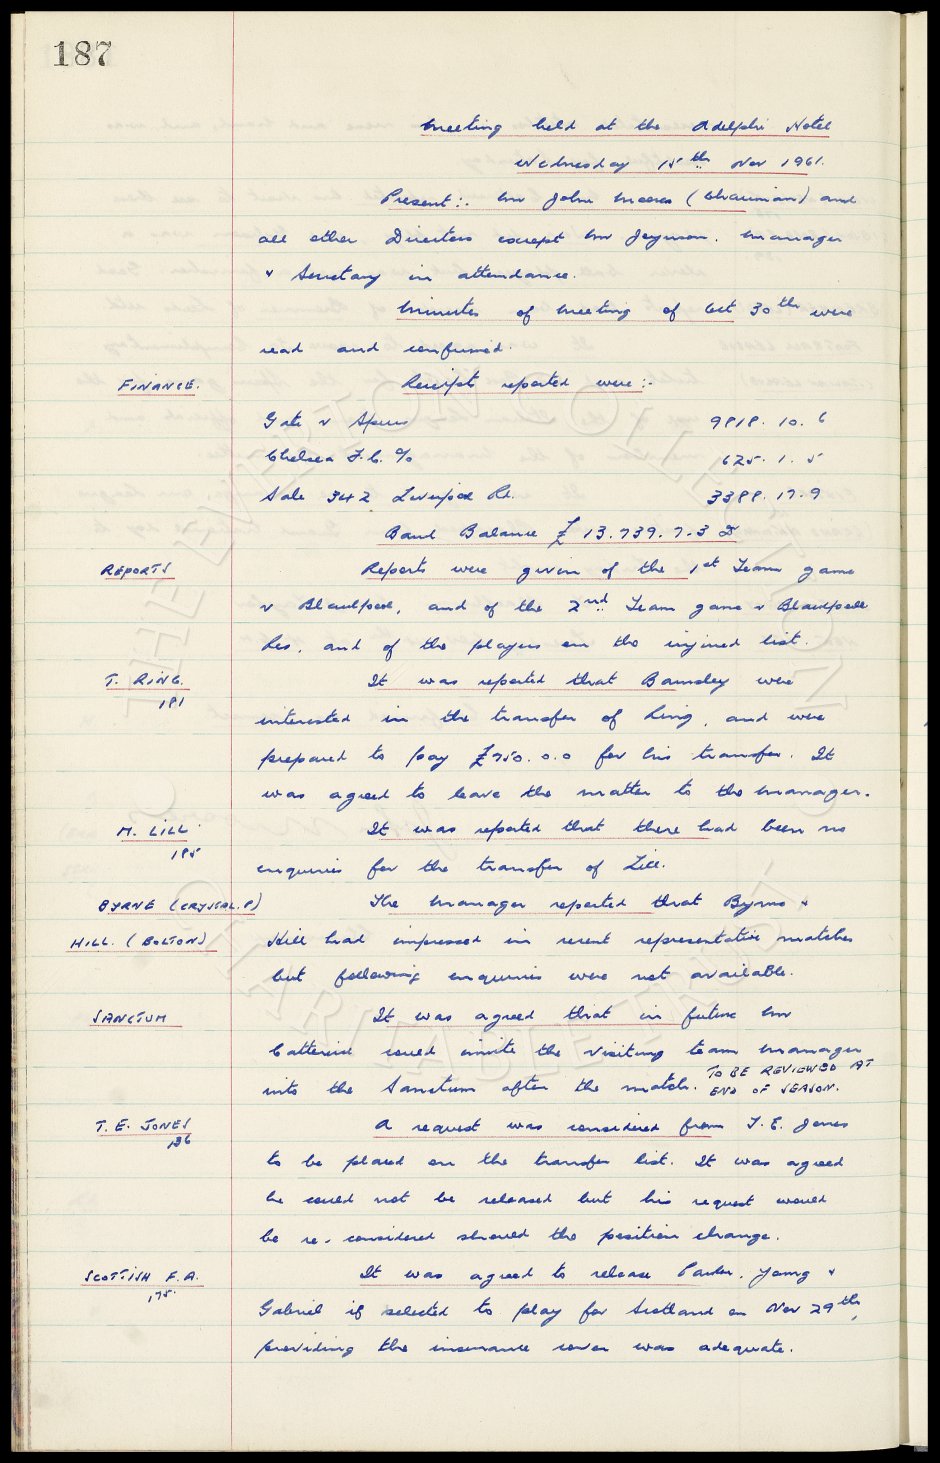 187
Meeting held at the Adelphi Hotel
Wednesday 15th Nov 1961.
Present:- Mr John Moores (Chairman) and
all other Directors except Mr Jergusson. Manager
& Secretary in attendance.
Minutes of meeting of Oct 30th were
read and confirmed.
FINANCE. Receipts reported were:-
Gate v Spurs 9818. 10. 6
Chelsea F.C. % 625. 1. 5
Sale 342 Liverpool Rd. 3388. 17. 9
Bank Balance £13.739. 7. 3 D
REPORTS Reports were given of the 1st Team game
v Blackpool, and of the 2nd Team game v Blackpool
Res, and of the players on the injured list.
T. RING. It was reported that Barnsley were
181
interested in the transfer of Ring, and were
prepared to pay £750. 0. 0 for his transfer. It
was agreed to leave the matter to the Manager.
M. LILL It was reported that there had been no
185
enquiries for the transfer of Lill.
BYRNE (CRYSTAL. P) The Manager reported that Byrne &
HILL. (BOLTON) Hill had impressed in recent representative matches
but following enquiries were not available.
SANCTUM It was agreed that in future Mr
Catterick could invite the visiting team manager
into the Sanctum after the match. TO BE REVIEWED AT
END OF SEASON.
T. E. JONES A request was considered from T. E. Jones
186
to be placed on the transfer list. It was agreed
he could not be released but his request would
be re-considered should the position change.
SCOTTISH F.A. It was agreed to release Parker, Young &
175.
Gabriel if selected to play for Scotland on Nov 29th,
providing the insurance cover was adequate.
THE EVERTON COLLECTION
CHARITABLE TRUST